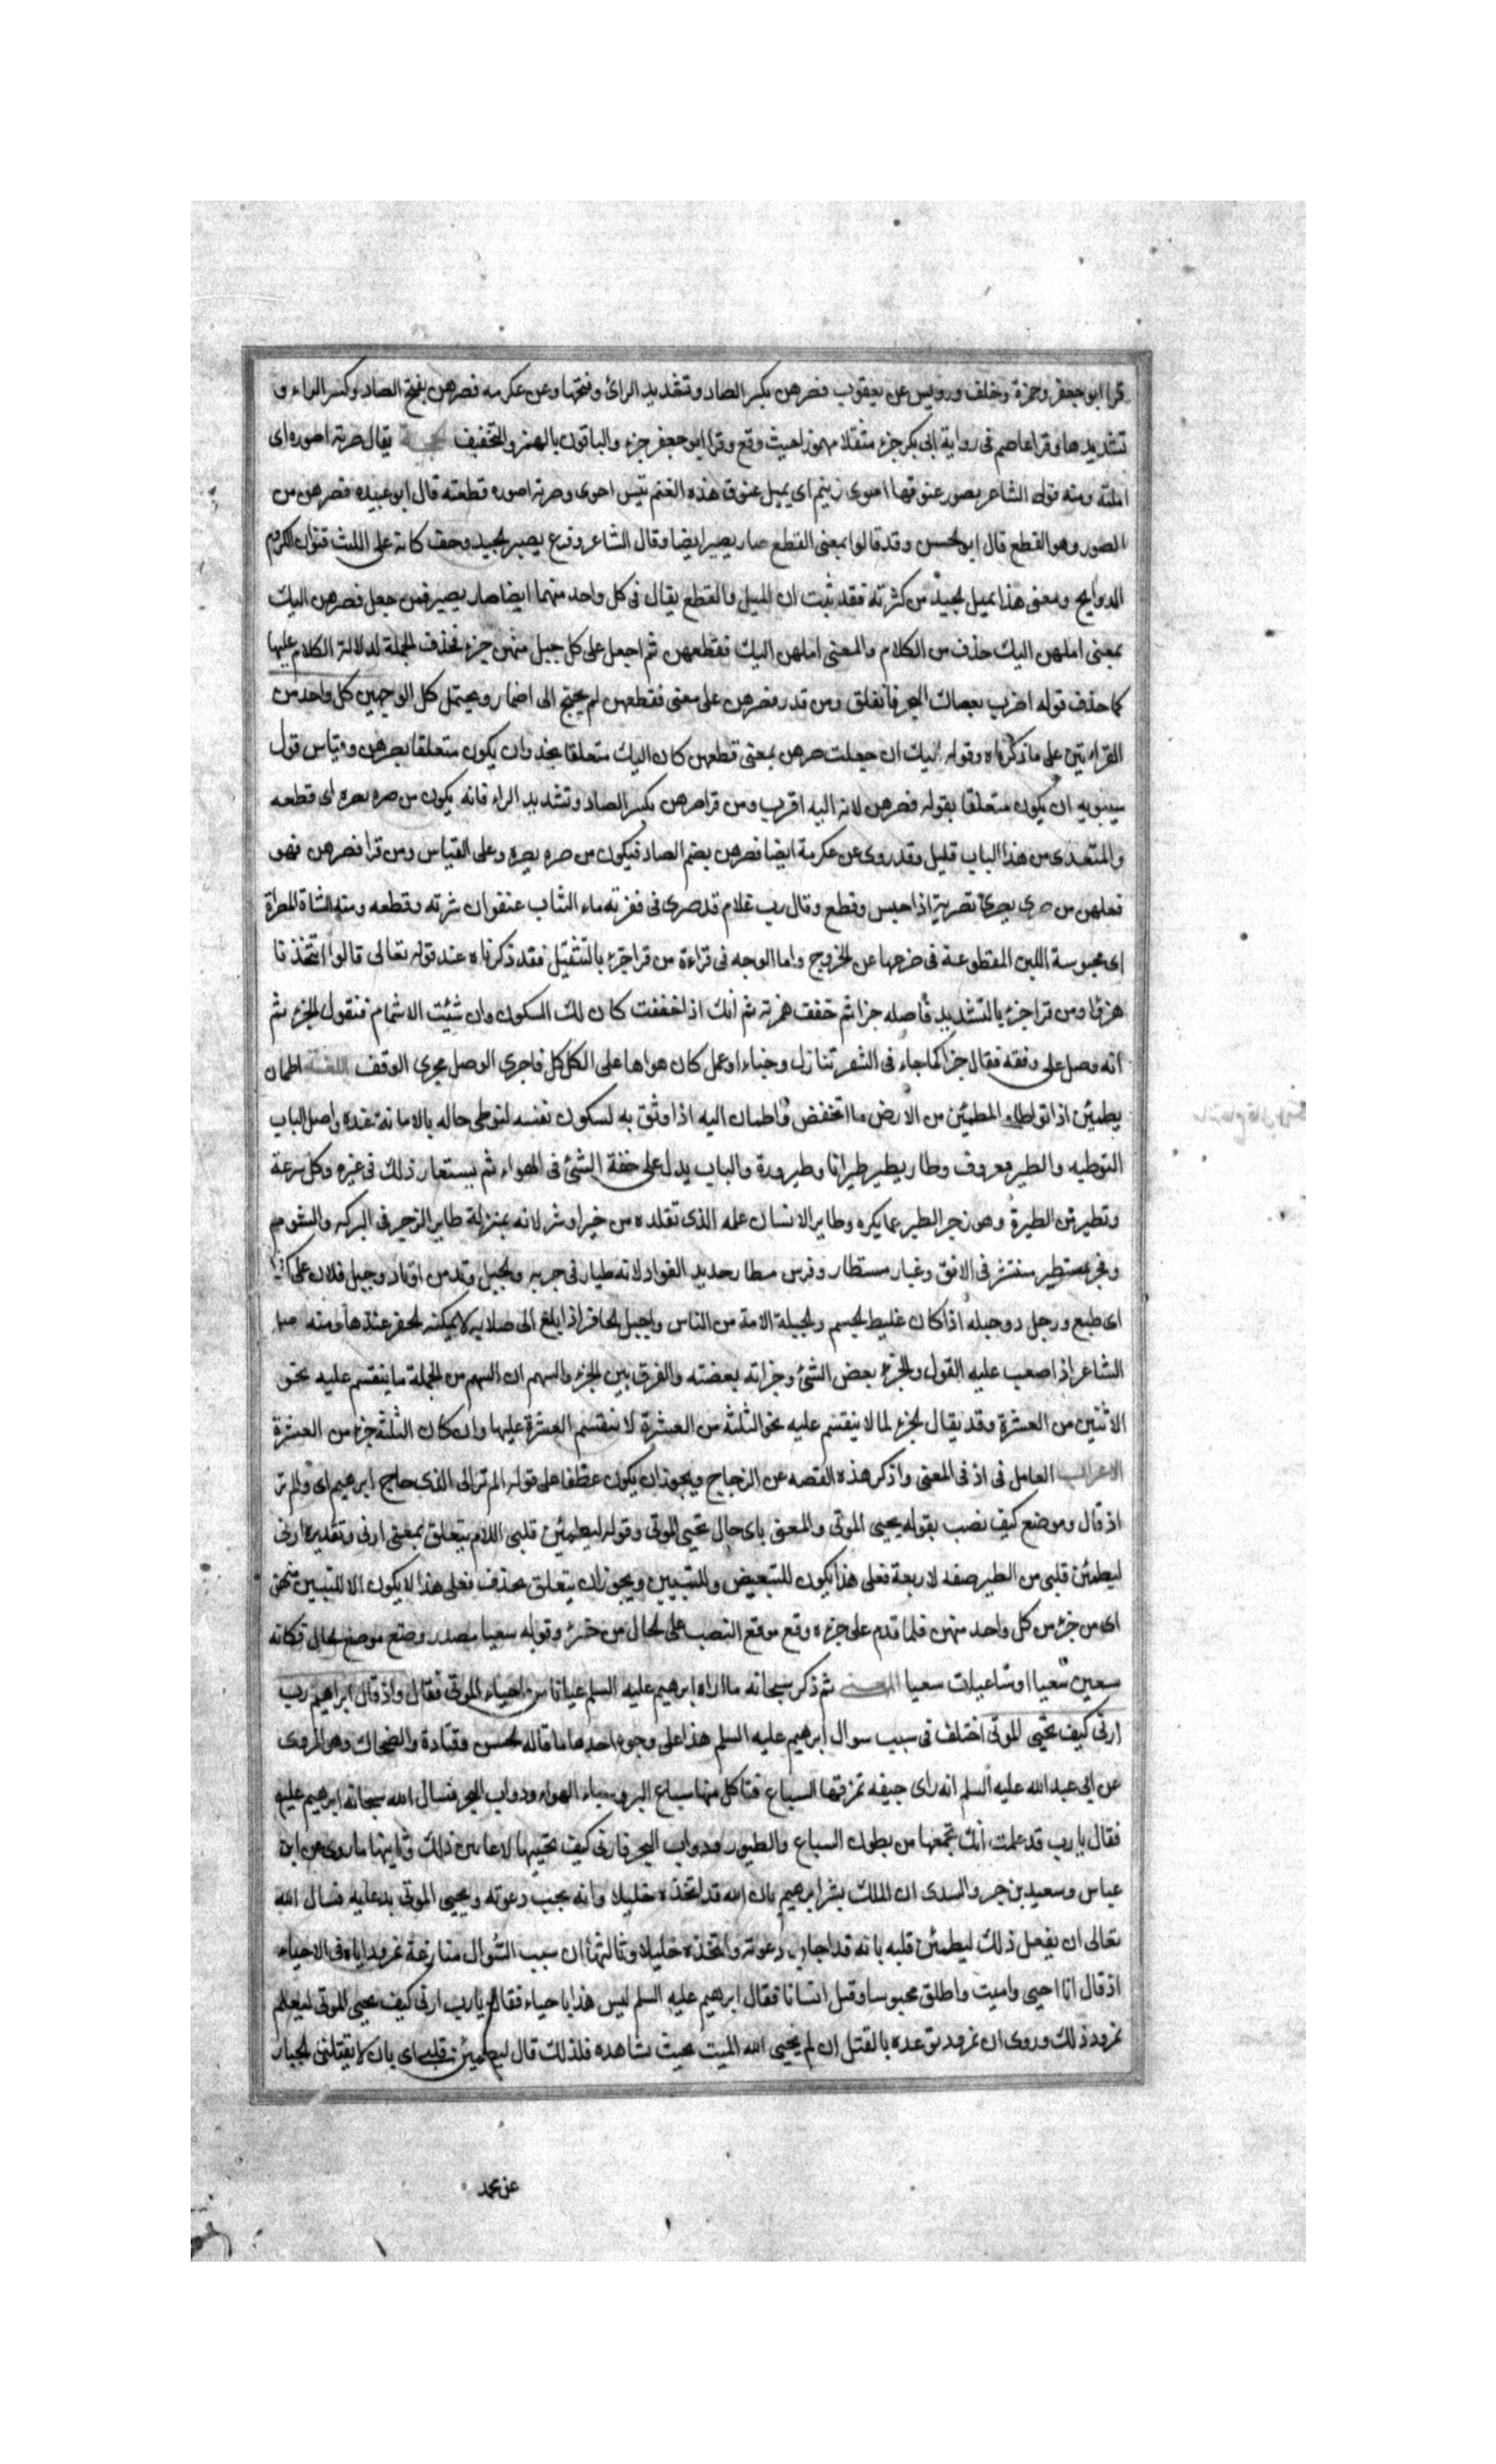 قرا ابو جعفر وحمزة وخلف ورويس عن يعقوب فصرهن بكسر الصاد وتشديد الرائ وفتحها وعن عكرمه فصرهن بفتح الصاد وكسر الراء و
تشديدها وقرا عاصم فى رواية ابى بكر جزء مثقلا مهموزا حيث وقع وقرا ابو جعفر جزء والباقون بالهمز والتخفيف يقال صرته اصوره اى
املته ومنه قوله الشاعر يصور عنوقها احوى زنيم اى يميل عنوق هذه الغنم تيس احوى وصرته اصوره قطعته قال ابو عبيده فصرهن من
الصور وهو القطع قال ابو الحسن وقد قالوا بمعنى القطع صار يصير ايضا وقال الشاعر وفرع يصير الجيد وحف كانه على الليث قنوان الكروم
الدوايح ومعنى هذا يميل الجيد من كثرته فقد ثبت ان الميل والقطع يقال فى كل واحد منهما ايضا صار يصير فمن جعل فصرهن اليك
بمعنى املهن اليك حذف من الكلام والمعنى املهن اليك فقطعهن ثم اجعل على كل جبل منهن جزء فحذف الجملة لدلالة الكلام عليها
كما حذف قوله اضرب بعصاك البحر فانفلق ومن قدر فصرهن على معنى فقطعهن لم يحتج الى اضمار ويحتمل كل الوجهين كل واحد من
القرائتين على ما ذكرناه وقوله اليك ان جعلت صرهن بمعنى قطعهن كان اليك متعلقا بخذ وان يكون متعلقا بصرهن وقياس قول
سيبويه ان يكون متعلقا بقوله فصرهن لانه اليه اقرب ومن قرا صرهن بكسر الصاد وتشديد الراء فانه يكون من صره يصره اى قطعه
والمتعدى من هذا الباب قليل وقد روى عن عكرمة ايضا فصرهن بضم الصاد فيكون من صره يصره وعلى القياس ومن قرا فصرهن فهو
فعلهن من صرى يصرى تصرية اذا حبس وقطع وقال رب غلام قد صرى فى فقرته ماء الشاب عنفوان شرته وقطعه ومنه الشاة المصراة
اى محبوسة اللبن المقطوعة فى ضرعها عن الخروج واما الوجه فى قراءة من قرا جزء بالتثقيل فقد ذكرناه عند قوله تعالى قالوا اتتخذنا
هزوا ومن قرا جزء بالتشديد فاصله جزا ثم خفف همزته ثم انك اذا خففت كان لك السكون وان شئت الاشمام فنقول الجزء ثم
انه وصل على وفقه فقال جزا كما جاء فى الشعر تنازل وجناء او عمل كان هواها على الكلكل فاجرى الوصل مجرى الوقف اللغة اطمان
يطمئن اذا توطا والمطمئن من الارض ما انخفض واطمان اليه اذا وثق به لسكون نفسه لتوطى حاله بالامانة عنده واصل الباب
التوطيه والطير معروف وطار يطير طيرانا وطيرورة والباب يدل على خفة الشئ فى الهواء ثم يستعار ذلك فى غيره وكل سرعة
وتطير من الطيرة وهو زجر الطير عما يكره وطاير الانسان عمله الذى تقلده من خير او شر لانه بمنزلة طاير الزجر فى البركه والشوم
وفجر مستطير منتشر فى الافق وغبار مستطار وفرس مطار حديد الفواد لانه طيار فى جريه والجبل وتد من اوتاد وجبل فلان على كذا
اى طبع ورجل ذو جبله اذا كان غليظ الجسم والجبيلة الامة من الناس واجبل الحافر اذا بلغ الى صلابه لا يمكنه الحفر عندها ومنه اجبل
الشاعر اذا صعب عليه القول والجزء بعض الشئ وجزاته بعضته والفرق بين الجزء والسهم ان السهم من الجملة ما ينقسم عليه نحو
الاثنين من العشرة وقد يقال الجزء لما لا ينقسم عليه نحو الثلثه من العشرة لا تنقسم العشرة عليها وان كان الثلثة جزء من العشرة
الاعراب العامل فى اذ فى المعنى واذكر هذه القصه عن الزجاج ويجوز ان يكون عطفا على قوله الم تر الى الذى حاج ابرهيم اى والم تر
اذ قال وموضع كيف نصب بقوله يحيى الموتى والمعنى باى حال تحيى الموتى وقوله ليطمئن قلبى اللام يتعلق بمعنى ارنى وتقديره ارنى
ليطمئن قلبى من الطير صفه لاربعة فعلى هذا يكون للتبعيض وللتبيين ويجوز ان يتعلق بخذ فعلى هذا لا يكون الا للتبيين منهن
اى من جزء من كل واحد منهن فلما قدم على جزءه وقع موقع النصب على الحال من جزء وقوله سعيا مصدر وضع موضع الحال فكانه
سعين سعيا او ساعيات سعيا المعنى ثم ذكر سبحانه ما اراه ابرهيم عليه السلم عيانا من احياء الموتى فقال واذ قال ابراهيم رب
ارنى كيف تحيى الموتى اختلف فى سبب سوال ابرهيم عليه السلم هذا على وجوه احدها ما قاله الحسن وقتادة والضحاك وهو المروى
عن ابى عبد الله عليه السلم انه راى جيفه تمزقها السباع فتاكل منها سباع البر وسباع الهواء ودواب البحر فسال الله سبحانه ابرهيم عليه
فقال يا رب قد علمت انك تجمعها من بطون السباع والطيور ودواب البحر فارنى كيف تحييها لاعاين ذلك وثانيها ما روى عن ابن
عباس وسعيد بن جبر والسدى ان الملك بشر ابرهيم بان الله قد اتخذه خليلا وانه يجب دعوته ويحيى الموتى بدعايه فسال الله
تعالى ان يفعل ذلك ليطمئن قلبه بانه قد اجاب دعوته واتخذه خليلا وثالثها ان سبب السوال منازعة نمرود اياه فى الاحياء
اذ قال انا احيى واميت واطلق محبوسا وقتل انسانا فقال ابرهيم عليه السلم ليس هذا باحياء فقال يا رب ارنى كيف تحيى الموتى ليعلم
نمرود ذلك وروى ان نمرود توعده بالقتل ان لم يحيى الله الميت بحيث شاهده فلذلك قال ليطمئن قلبى اى بان لا يقتلنى الجبار
عن محمد